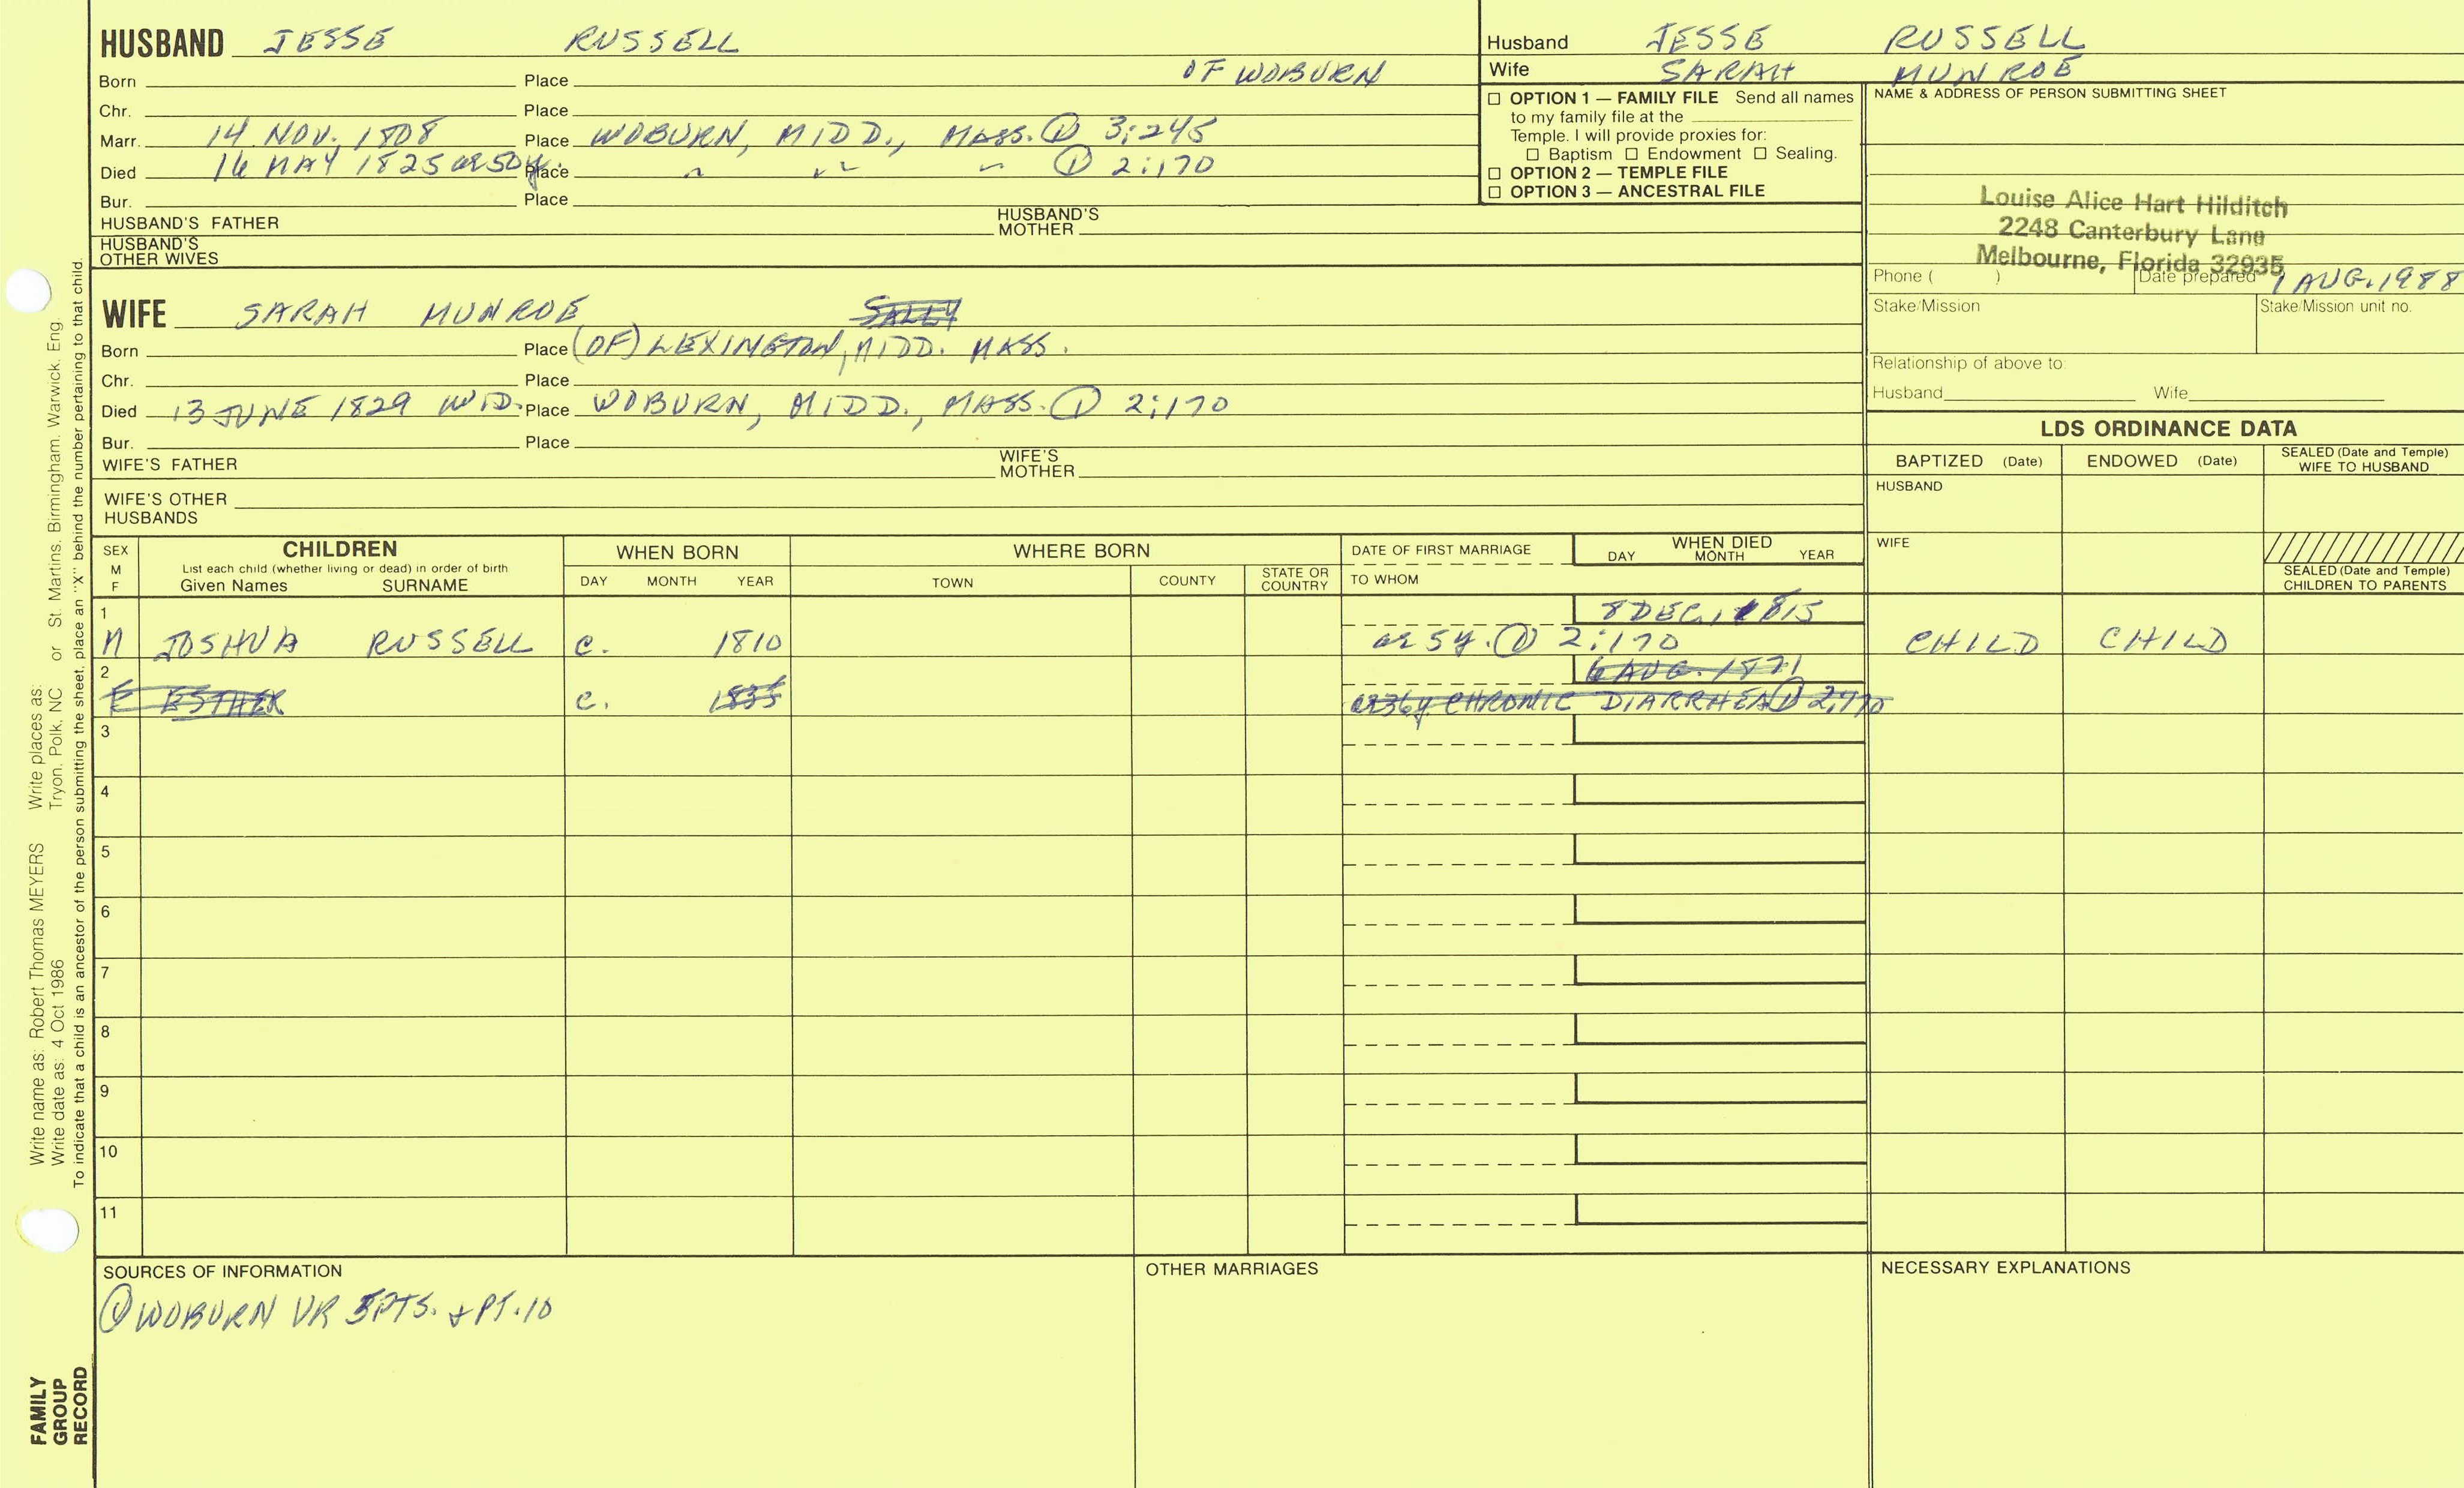 HUSBAND JESSE RUSSELL
Born Place OF WOBURN
Chr. Place
Marr. 14 NOV. 1808 Place WOBURN, MIDD., MASS. ① 3:245
Died 16 MAY 1825 ae 50y. Place " " " ① 2:170
Bur. Place
HUSBAND'S FATHER HUSBAND'S MOTHER
HUSBAND'S OTHER WIVES
Husband JESSE RUSSELL
Wife SARAH MUNROE
☐ OPTION 1 — FAMILY FILE Send all names
to my family file at the
Temple. I will provide proxies for:
☐ Baptism ☐ Endowment ☐ Sealing.
☐ OPTION 2 — TEMPLE FILE
☐ OPTION 3 — ANCESTRAL FILE
NAME & ADDRESS OF PERSON SUBMITTING SHEET
Louise Alice Hart Hilditch
2248 Canterbury Lane
Melbourne, Florida 32935
Phone ( ) Date prepared 1 AUG. 1988
Stake/Mission Stake/Mission unit no.
Relationship of above to:
Husband Wife
WIFE SARAH MUNROE SALLY
Born Place (OF) LEXINGTON, MIDD. MASS.
Chr. Place
Died 13 JUNE 1829 WID. Place WOBURN, MIDD., MASS. ① 2:170
Bur. Place
WIFE'S FATHER WIFE'S MOTHER
WIFE'S OTHER HUSBANDS
LDS ORDINANCE DATA
BAPTIZED (Date) ENDOWED (Date) SEALED (Date and Temple) WIFE TO HUSBAND
HUSBAND
WIFE
SEALED (Date and Temple) CHILDREN TO PARENTS
SEX M F
CHILDREN
List each child (whether living or dead) in order of birth
Given Names SURNAME
WHEN BORN
DAY MONTH YEAR
WHERE BORN
TOWN COUNTY STATE OR COUNTRY
DATE OF FIRST MARRIAGE
TO WHOM
WHEN DIED
DAY MONTH YEAR
1 8 DEC. 1815
M JOSHUA RUSSELL c. 1810 ae 5y. ① 2:170 CHILD CHILD
2 6 AUG. 1871
F ESTHER c. 1835 ae 36y CHRONIC DIARRHEA ① 2:170
3
4
5
6
7
8
9
10
11
SOURCES OF INFORMATION
① WOBURN VR 3 PTS. + PT. 10
OTHER MARRIAGES
NECESSARY EXPLANATIONS
Write name as: Robert Thomas MEYERS Write places as:
Write date as: 4 Oct 1986 Tryon, Polk, NC or St. Martins, Birmingham, Warwick, Eng.
To indicate that a child is an ancestor of the person submitting the sheet, place an "X" behind the number pertaining to that child.
FAMILY
GROUP
RECORD